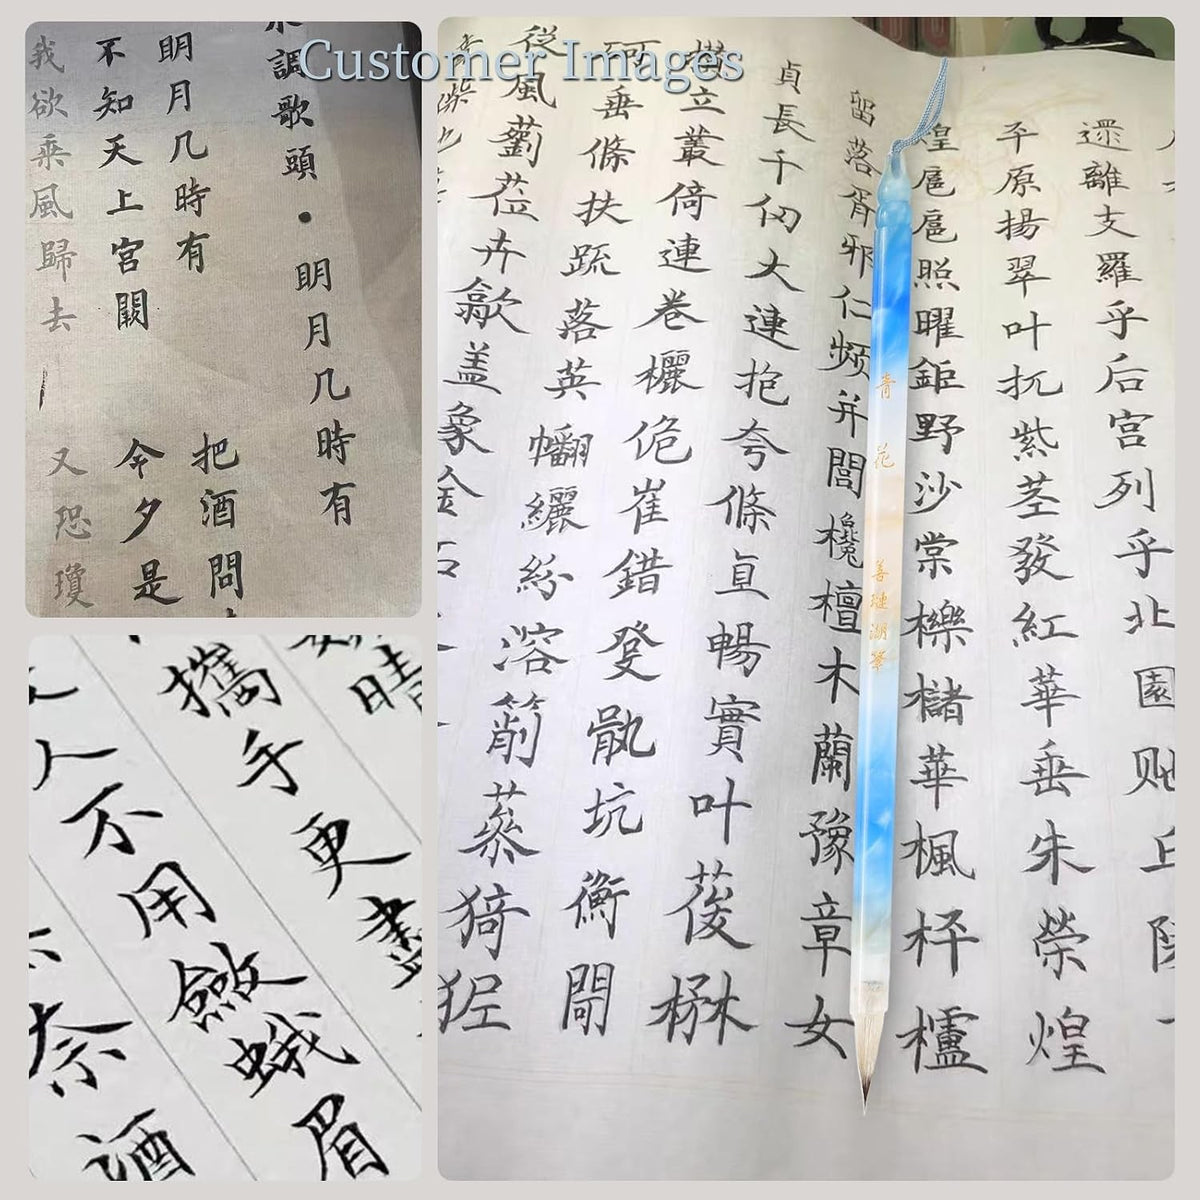 Customer Images
水調歌頭·明月几時有
明月几時有 把酒問
不知天上宮闕 今夕是
我欲乘風歸去 又恐瓊
晴
攜手更盡
人不用斂蛾眉
奈酒
遝離支羅乎后宮列乎北園
平原揚翠叶抏紫莖發紅華垂朱榮煌
煌扈扈照曜鉅野沙棠櫟櫧華楓枰櫨
留落胥邪仁頻并閭欃檀木蘭豫章女
貞長千仞大連抱夸條直暢實叶葰楙
攢立叢倚連卷欐佹崔錯癹骫坑衡閜
砢垂條扶疏落英幡纚紛溶箾蔘猗狔
從風藰莅卉歙蓋象金石
青花
善璉湖筆